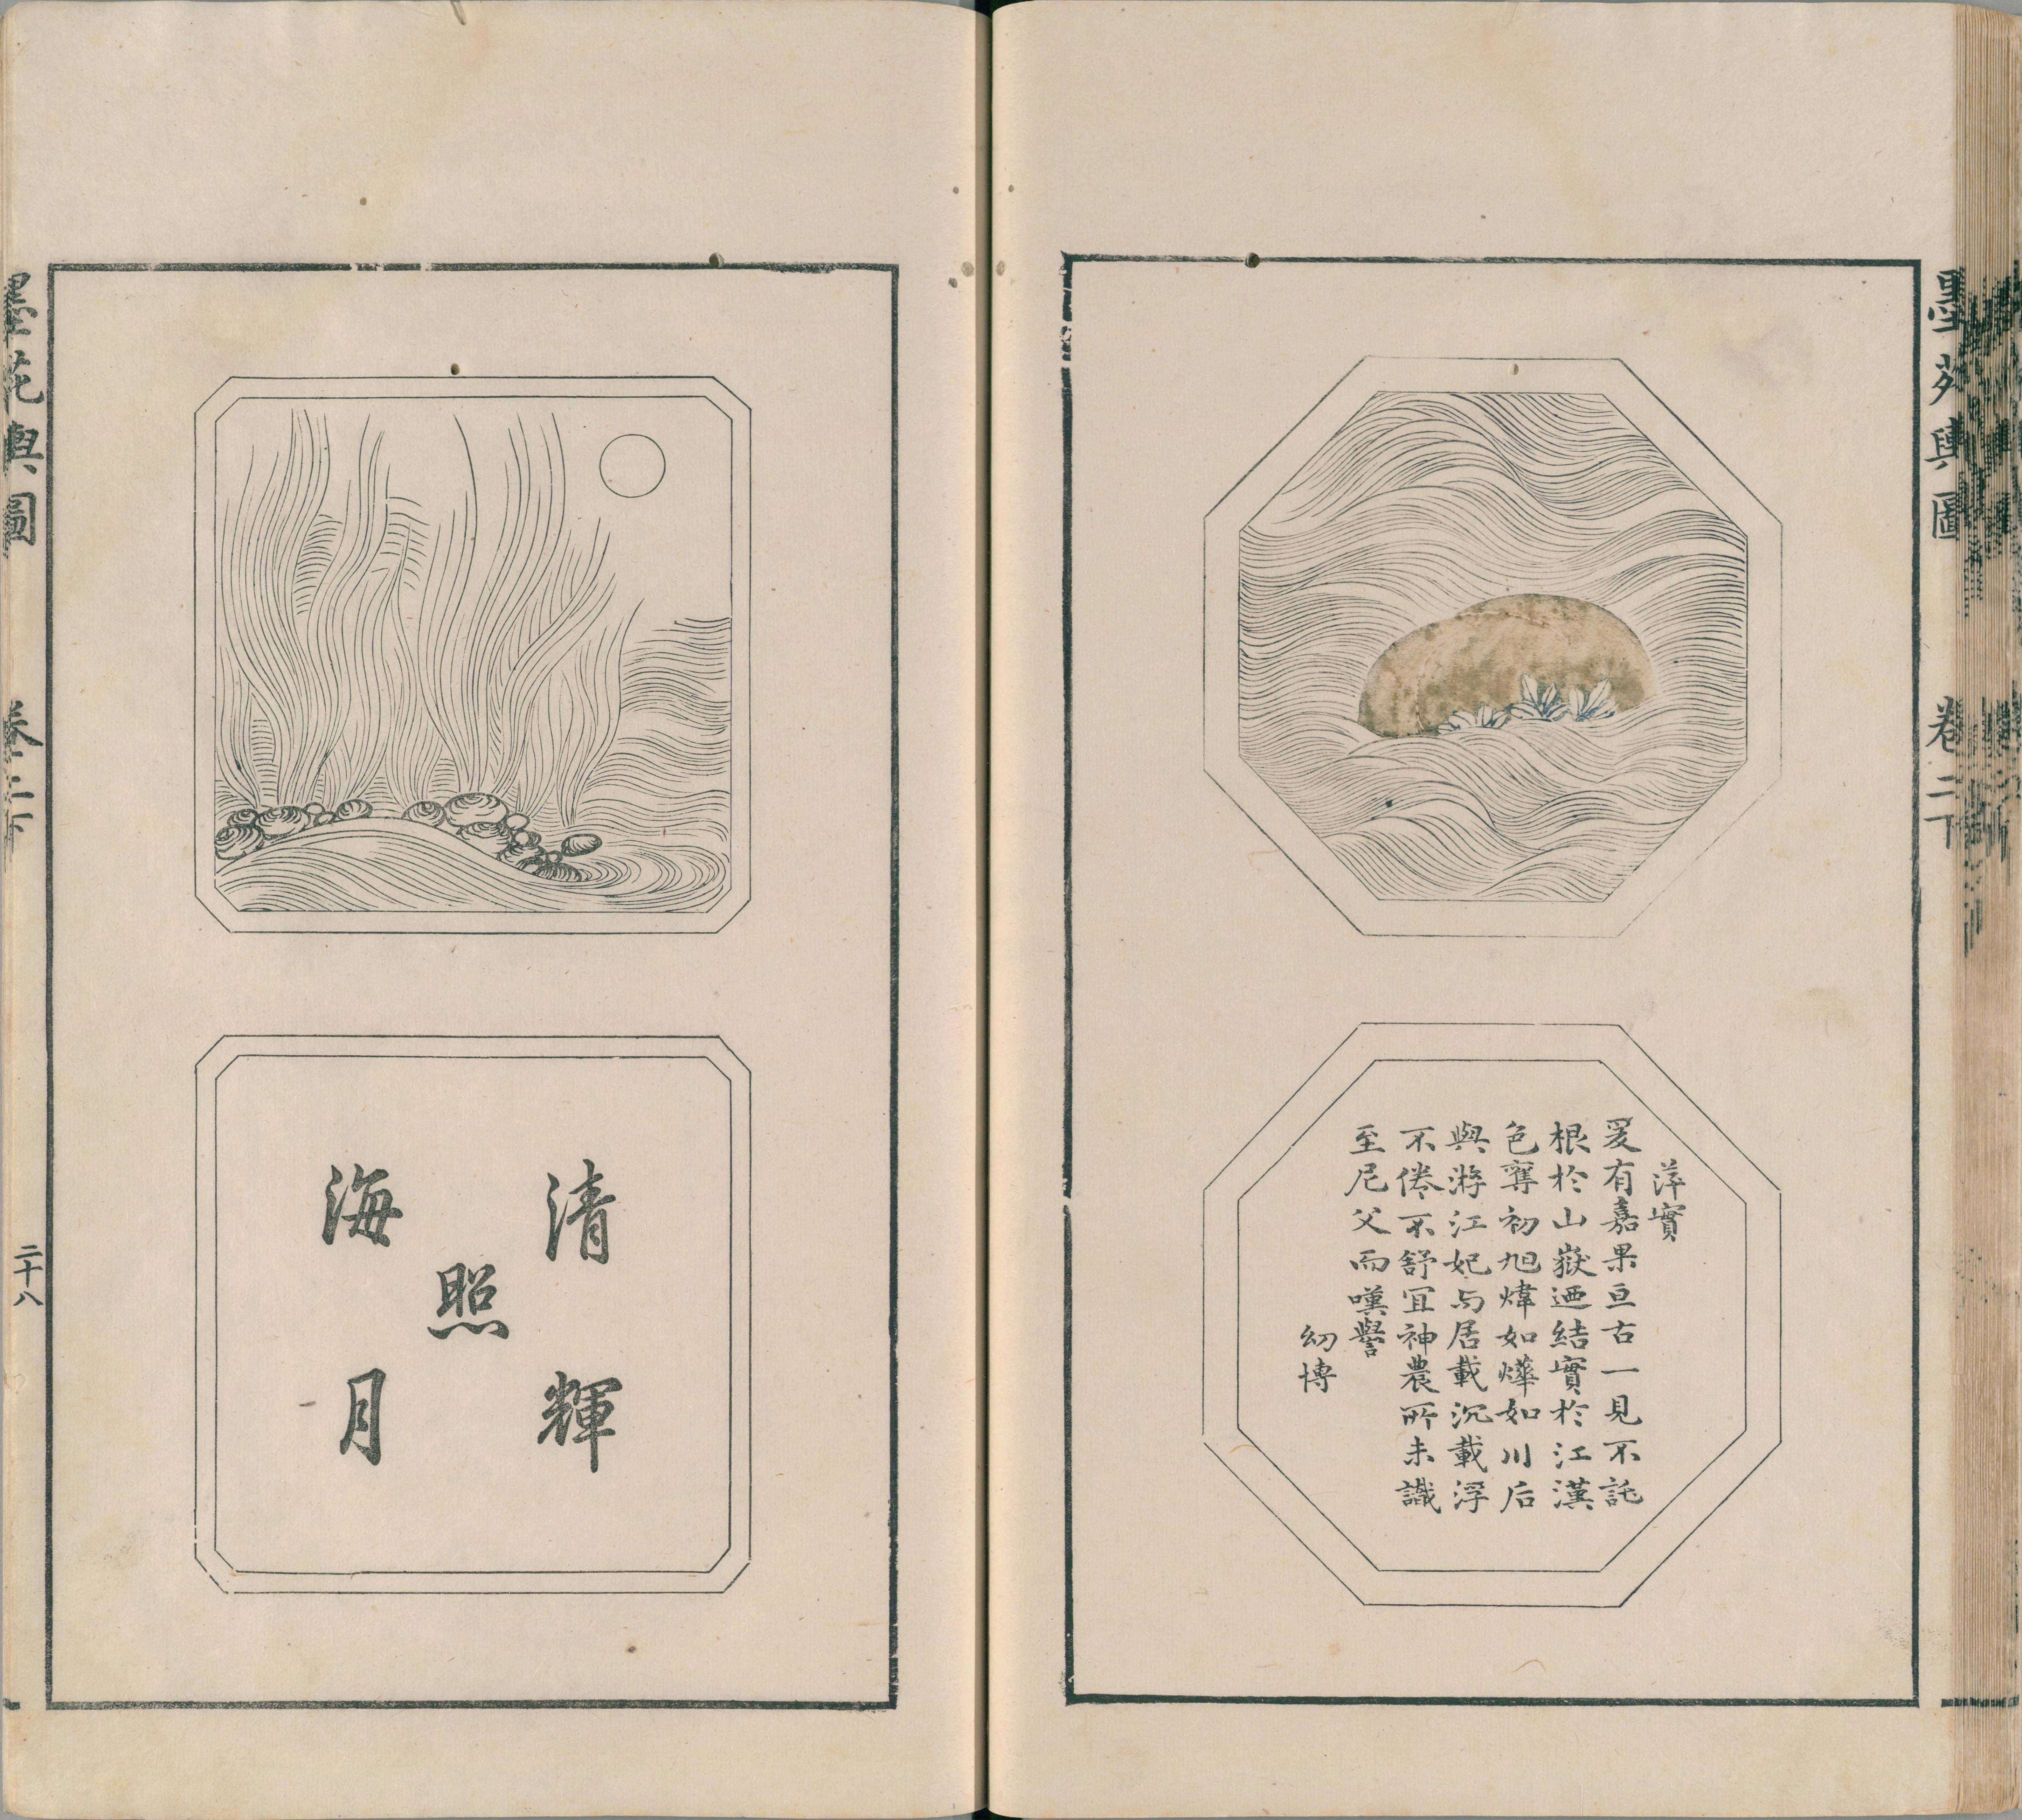 墨苑輿圖 卷二下
萍實
爰有嘉果亘古一見不託
根於山嶽迺結實於江漢
色奪初旭煒如燁如川后
與游江妃与居載沉載浮
不倦不舒冝神農所未識
至尼父而嘆譽
幼博
清輝
照
海月
墨苑輿圖 卷二下
二十八